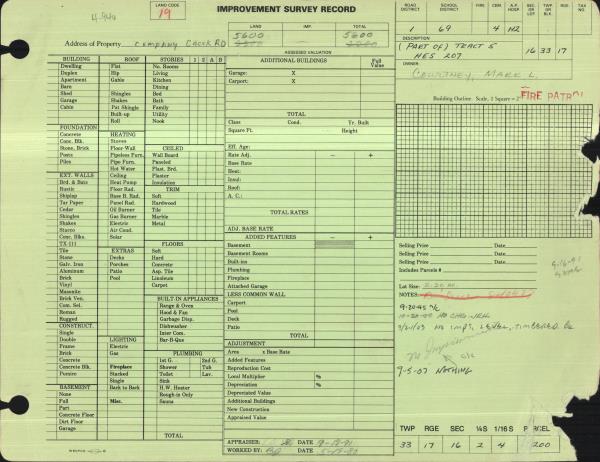 IMPROVEMENT SURVEY RECORD
LAND CODE
19
LAND IMP. TOTAL
5600 5600
Address of Property Company Creek RD
ASSESSED VALUATION
ROAD DISTRICT SCHOOL DISTRICT FIRE CEM. A.P. HOSP. SEC OR LOT TWP OR BLK RGE TAX NO.
1 69 4 H2
DESCRIPTION
(PART OF) TRACT 5 16 33 17
HES 207
OWNER
COURTNEY, MARK L.
Building Outline Scale, 1 Square =
FIRE PATROL
BUILDING ROOF STORIES 1 2 A B
Dwelling Flat No. Rooms
Duplex Hip Living
Apartment Gable Kitchen
Barn Dining
Shed Shingles Bed
Garage Shakes Bath
Cabin Pat Shingle Family
Built-up Utility
Roll Nook
FOUNDATION
Concrete HEATING
Conc. Blk. Stoves CEILED
Stone, Brick Floor Wall Wall Board
Posts Pipeless Furn. Paneled
Piles Pipe Furn. Plast. Brd.
Hot Water Plaster
EXT. WALLS Ceiling Insulation
Brd. & Bats Heat Pump TRIM
Rustic Floor Rad. Soft
Shiplap Base B. Rad. Hardwood
Tar Paper Panel Rad. Tile
Cedar Oil Burner Marble
Shingles Gas Burner Metal
Shakes Electric
Stucco Air Cond.
Conc. Blks. Solar
TX 111 FLOORS
Tile EXTRAS Soft
Stone Decks Hard
Galv. Iron Porches Concrete
Aluminum Patio Asp. Tile
Brick Pool Linoleum
Vinyl Carpet
Masonite
Brick Ven. BUILT-IN APPLIANCES
Com. Sel. Range & Oven
Roman Hood & Fan
Rugged Garbage Disp.
CONSTRUCT. Dishwasher
Single Inter Com.
Double LIGHTING Bar-B-Que
Frame Electric
Brick Gas PLUMBING
Concrete 1st G. 2nd G.
Concrete Blk. Fireplace Shower Tub
Pumice Stacked Toilet Lav.
Single Sink
BASEMENT Back to Back H.W. Heater
None Rough-in Only
Full Misc. Sauna
Part
Concrete Floor
Dirt Floor
Garage TOTAL
ADDITIONAL BUILDINGS Full Value
Garage: X
Carport: X
TOTAL
Class Cond. Yr. Built
Square Ft. Height
Eff. Age:
Rate Adj. − +
Base Rate
Heat:
Insul:
Roof:
A. C.:
TOTAL RATES
ADJ. BASE RATE
ADDED FEATURES − +
Basement
Basement Rooms
Built-ins
Plumbing
Fireplace
Attached Garage
LESS COMMON WALL
Carport
Pool
Deck
Patio
TOTAL
ADJUSTMENT
Area x Base Rate
Added Features
Reproduction Cost
Local Multiplier %
Depreciation %
Depreciated Value
Additional Buildings
New Construction
Appraised Value
APPRAISER: DATE 9-17-91
WORKED BY: DATE
Selling Price Date
Selling Price Date
Selling Price Date
Includes Parcels #
Lot Size: 2.20 Ac.
NOTES:
9-20-95 N/C
NO CHG
NO IMPS,
No Improvements
9-5-07 NOTHING
TWP RGE SEC ¼S 1/16 S PARCEL
33 17 16 2 4 200